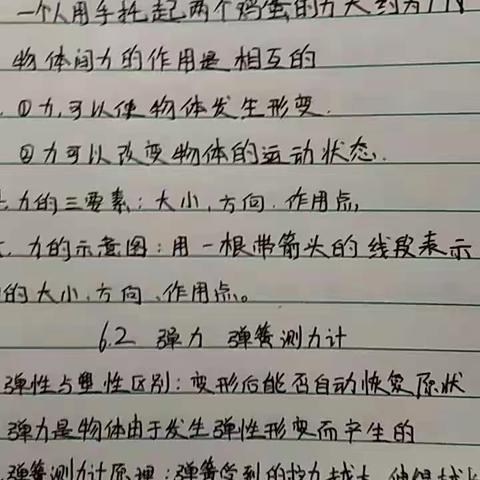 一个人用手托起两个鸡蛋的力大约为1N
物体间力的作用是相互的
①力可以使物体发生形变.
②力可以改变物体的运动状态.
力的三要素:大小,方向.作用点,
力的示意图:用一根带箭头的线段表示
的大小、方向、作用点。
6.2 弹力 弹簧测力计
弹性与塑性区别:变形后能否自动恢复原状
弹力是物体由于发生弹性形变而产生的
弹簧测力计原理:弹簧受到的拉力越大,伸得越长